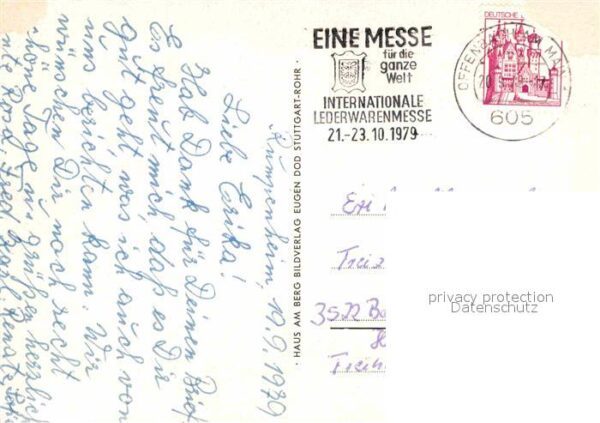 Rumpenheim, 10.9.1979
Liebe Erika!
Hab Dank für Deinen Brief
Es freut mich daß es Dir
gut geht was ich auch von
uns berichten kann. Wir
wünschen Dir noch recht
schöne Tage u. grüßen herzlich
Fred, Karl, Renate
· HAUS AM BERG BILDVERLAG EUGEN DOD STUTTGART-ROHR ·
EINE MESSE
für die
ganze
Welt
INTERNATIONALE
LEDERWARENMESSE
21.-23.10.1979
OFFENBACH AM MAIN
605
DEUTSCHE
Freiz
3522
privacy protection
Datenschutz